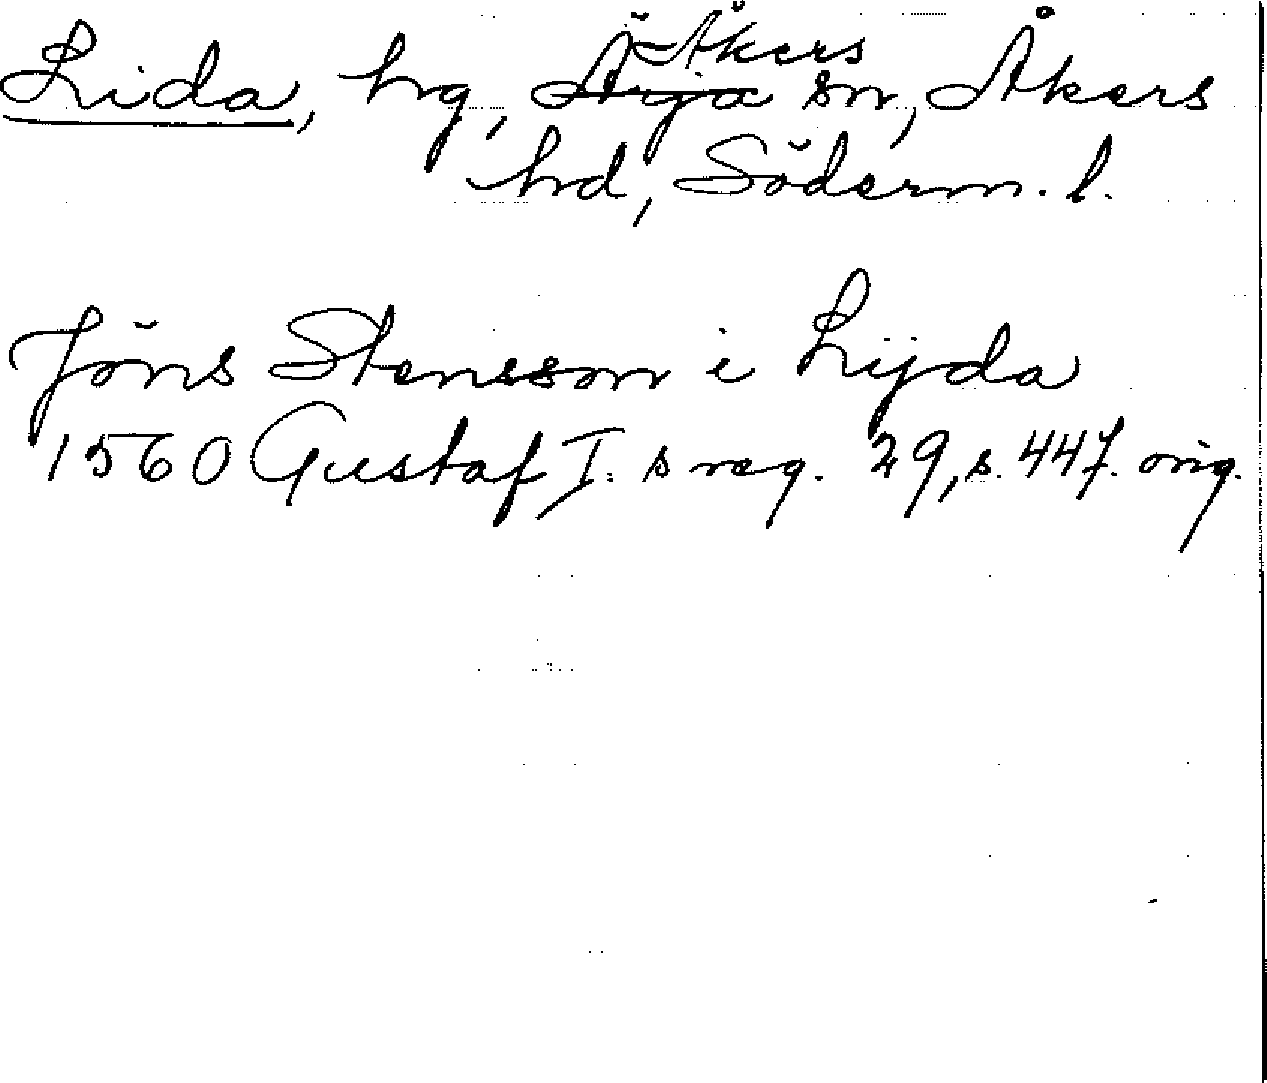 Åkers
Lida, hg, Ärja sn, Åkers
hd, Söderm. l.
Jöns Stensson i Lijda
1560 Gustaf I:s reg. 29, s. 447. orig.